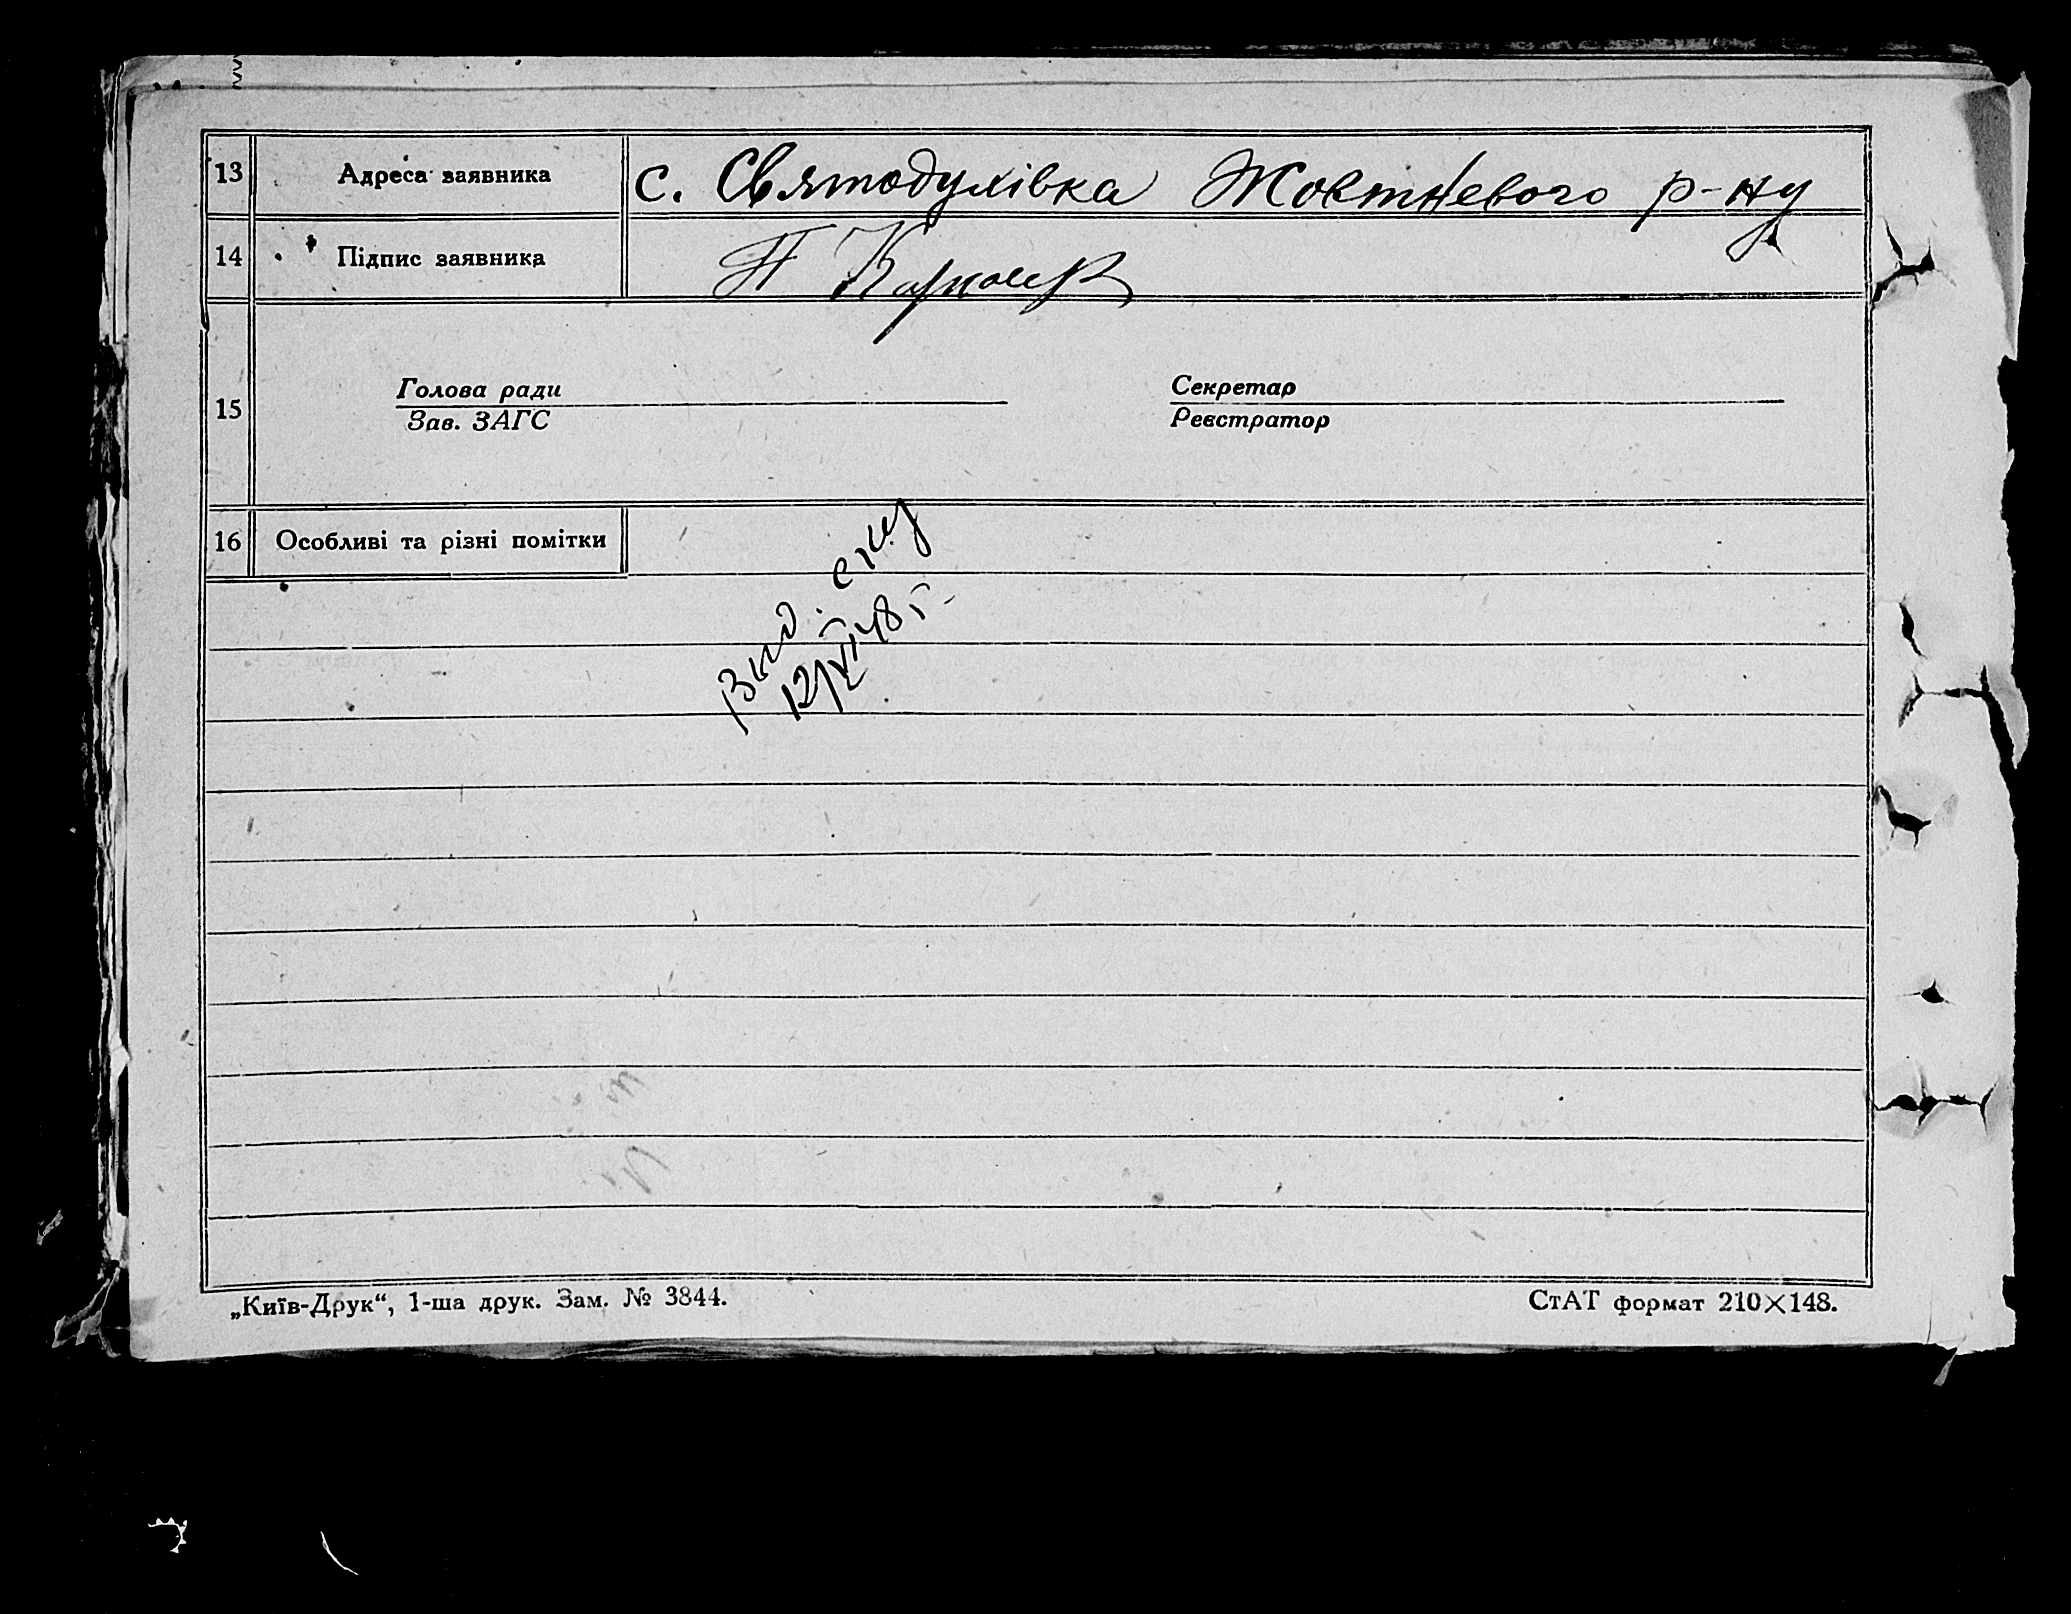 13 Адреса заявника с. Святодухівка Жовтневого р-ну
14 Підпис заявника П
15 Голова ради Секретар
Зав. ЗАГС Реєстратор
16 Особливі та різні помітки
Вид.
12/VI 48 г.
„Київ-Друк“, 1-ша друк. Зам. № 3844. СтАТ формат 210×148.